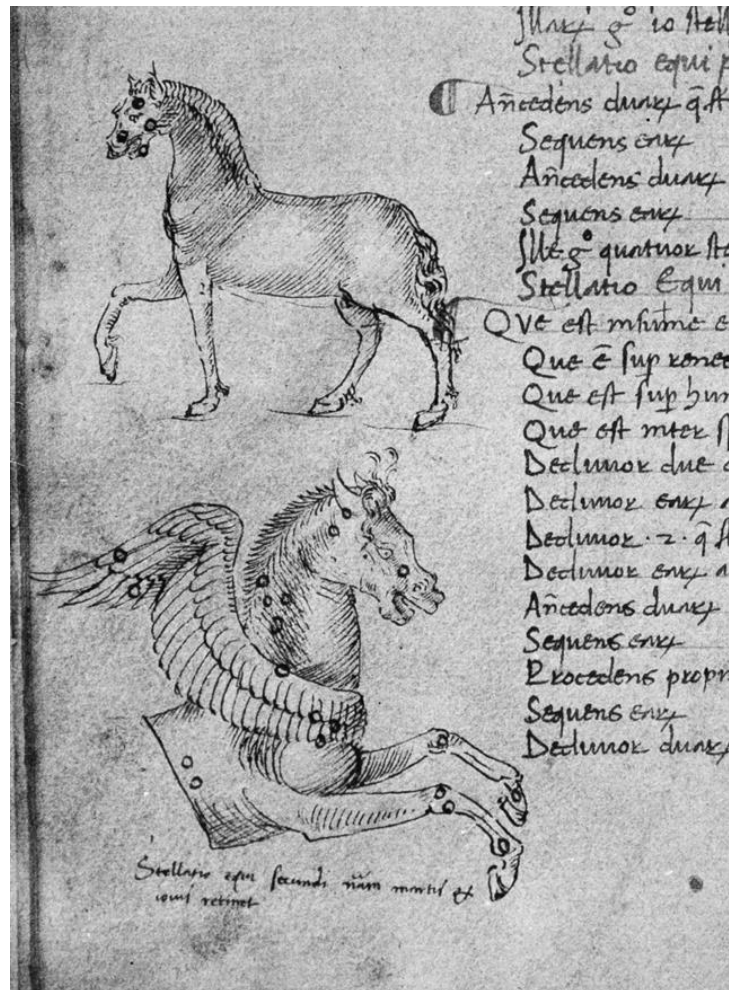 Stellatio equi p
Añcedens duarx q̃ st
Sequens earx
Añcedens duarx
Sequens earx
Ille gͦ quatuor ste
Stellatio Equi
Que est in
Que ẽ sup
Que est sup hum
Que est inter sp
Declinior due
Declinior earx
Declinior · 2 · q̃ st
Declinior earx a
Añcedens duarx
Sequens earx
Procedens propri
Sequens earx
Declinior duarx
Stellatio equi secundi nãm martis et
iovis retinet